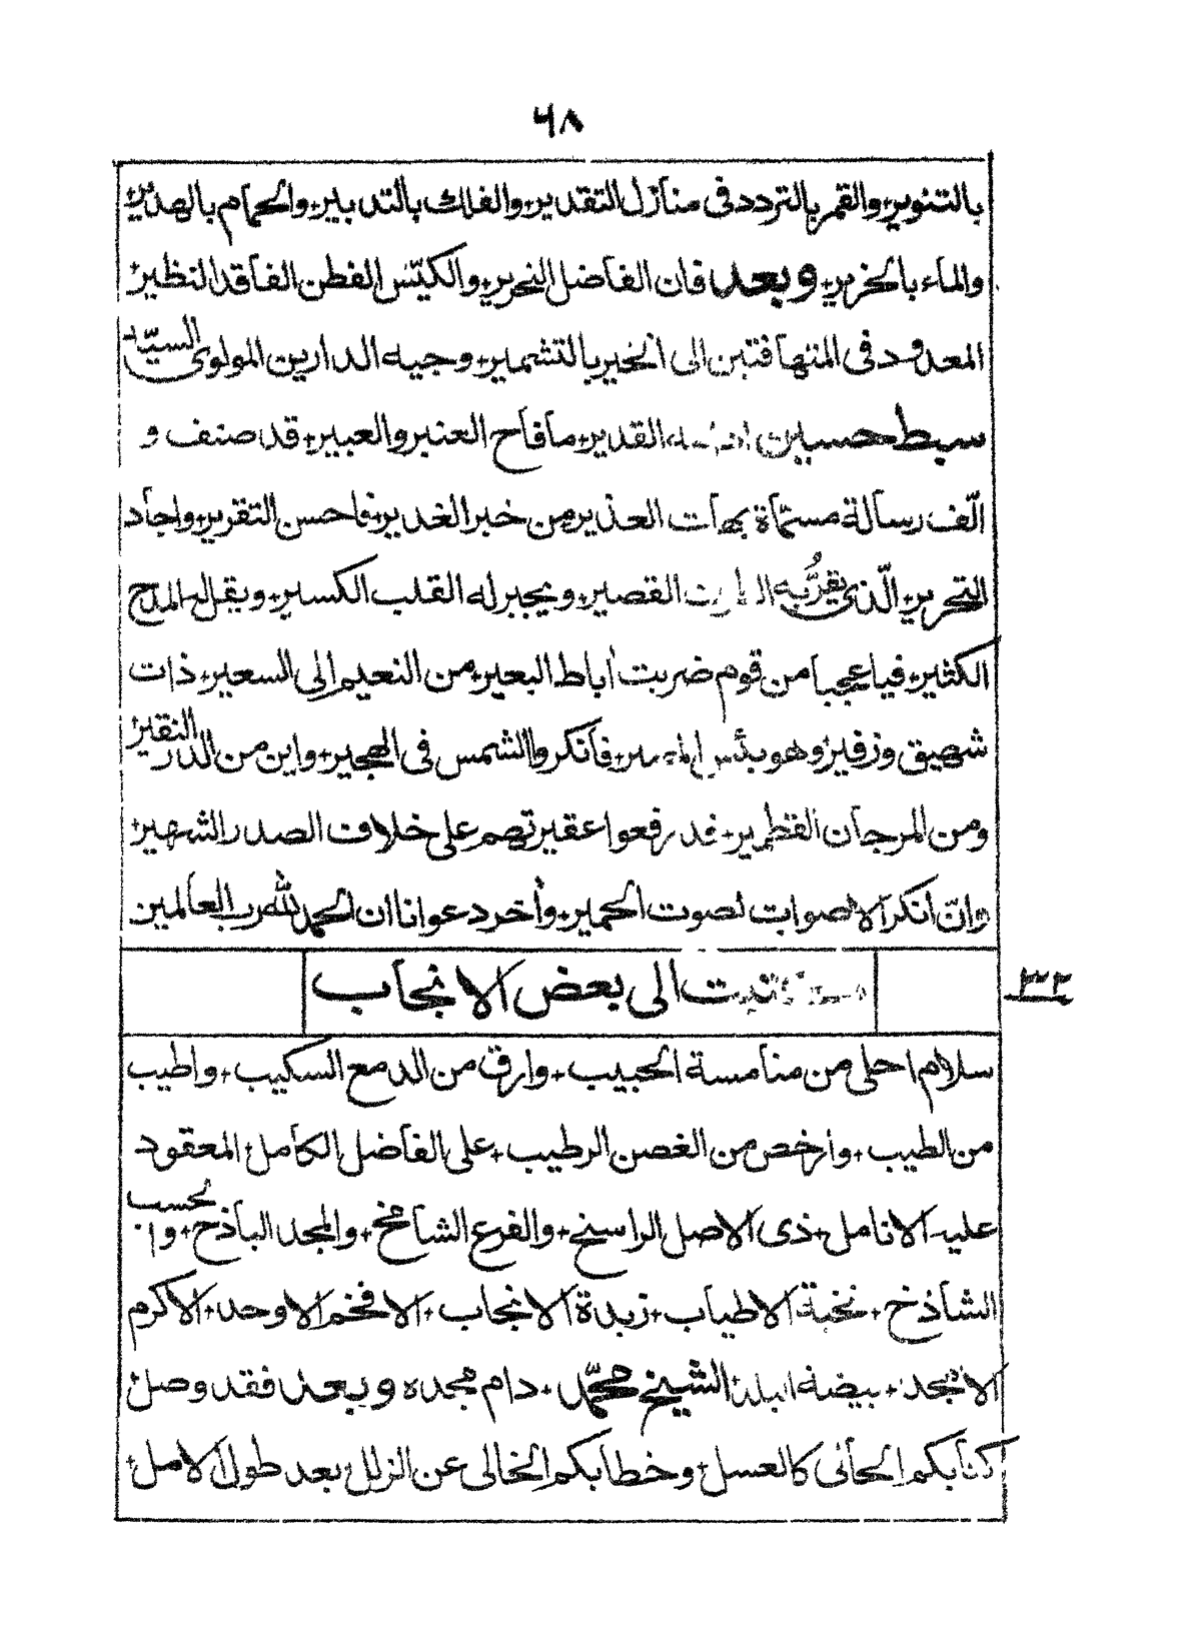 ٦٨
بالتنوير+والقمر بالتردد فى منازل التقدير+والفلك بالتدبير+والحمام بالهدير+
والماء بالخرير+وبعد فان الفاضل النحرير+والكيّس الفطن الفاقد النظير+
المعدود فى المنتهافتين الى الخير بالتشمير+وجيه الدارين المولوى السيّد
سبط حسين القدير+مافاح العنبر والعبير+قد صنف و
الّف رسالة مسمّاة بهات العذير من خبر الغدير+فاحسن التقرير+واجاد
التحرير+الّذى يقرّبه القصير+ويجبر له القلب الكسير+ويقل له المدح
الكثير+فياعجبا من قوم ضربت اٰباط البعير+من النعيم الى السعير+ذات
شهيق وزفير+وهو بئس فانكروا الشمس فى الهجير+واين من الدار النقير+
ومن المرجان القطمير+قد رفعوا عقيرتهم على خلاف الصدر الشهير+
وانّ انكر الاصوات لصوت الحمير+وأخر دعوانا ان الحمد لله رب العالمين
الى بعض الانجاب
٣٢
سلام احلى من منامسة الحبيب+وارق من الدمع السكيب+واطيب
من الطيب+وارخص من الغصن الرطيب+على الفاضل الكامل+المعقود
عليه الانامل+ذى الاصل الراسخ+والفرع الشامخ+والمجد الباذخ+والحسب
الشاذخ+نخبة الاطياب+زبدة الانجاب+الافخم الاوحد+الاكرم
الامجد+بيضة البلد+الشيخ محمّد+دام مجده وبعد فقد وصل
كتابكم الحائى كالعسل+وخطابكم الخالى عن الزلل+بعد طول الامل+